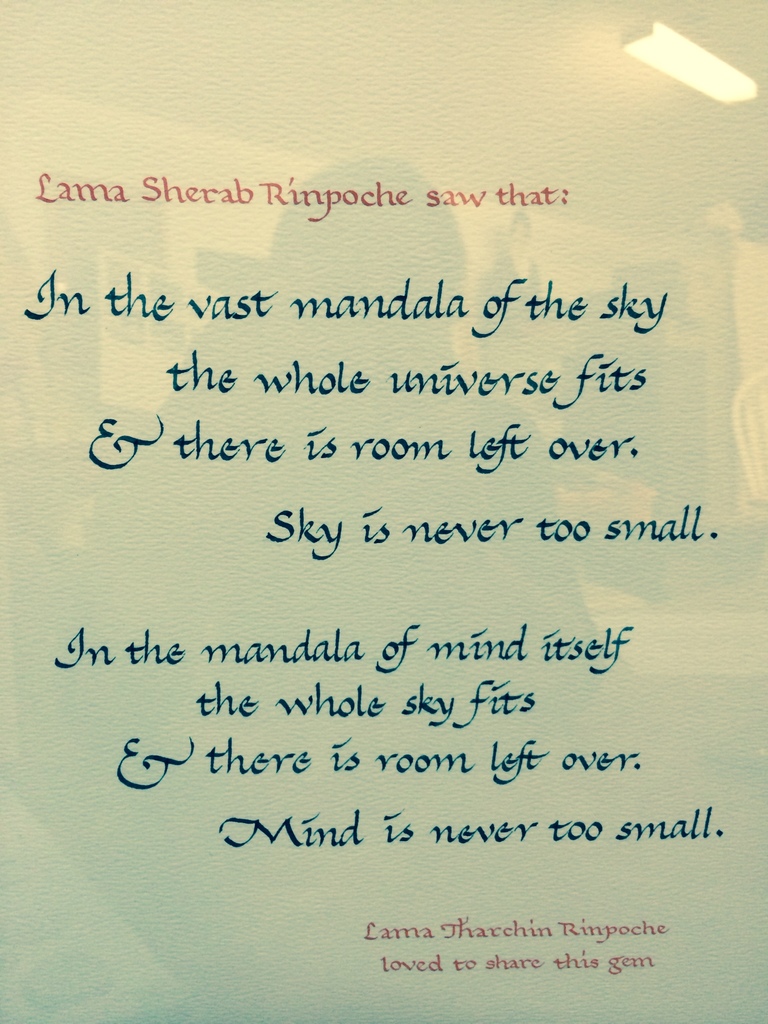 Lama Sherab Rinpoche saw that:
In the vast mandala of the sky
the whole universe fits
& there is room left over.
Sky is never too small.
In the mandala of mind itself
the whole sky fits
& there is room left over.
Mind is never too small.
Lama Tharchin Rinpoche
loved to share this gem